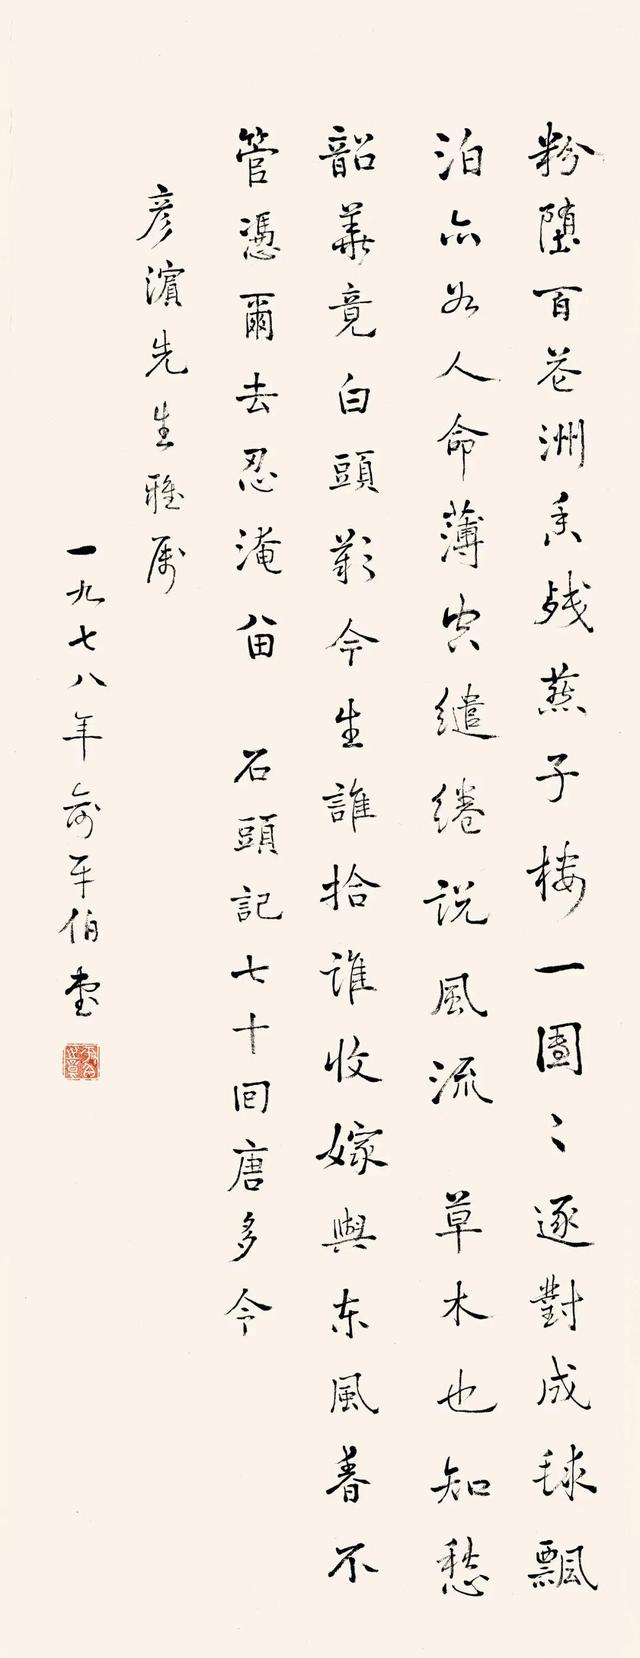 粉堕百花洲香残燕子楼一團〻逐對成毬飄
泊亦如人命薄空繾綣說風流 草木也知愁
韶華竟白頭歎今生誰拾誰收嫁與东風春不
管憑爾去忍淹留 石頭記七十回唐多令
彦濱先生雅属
一九七八年俞平伯書